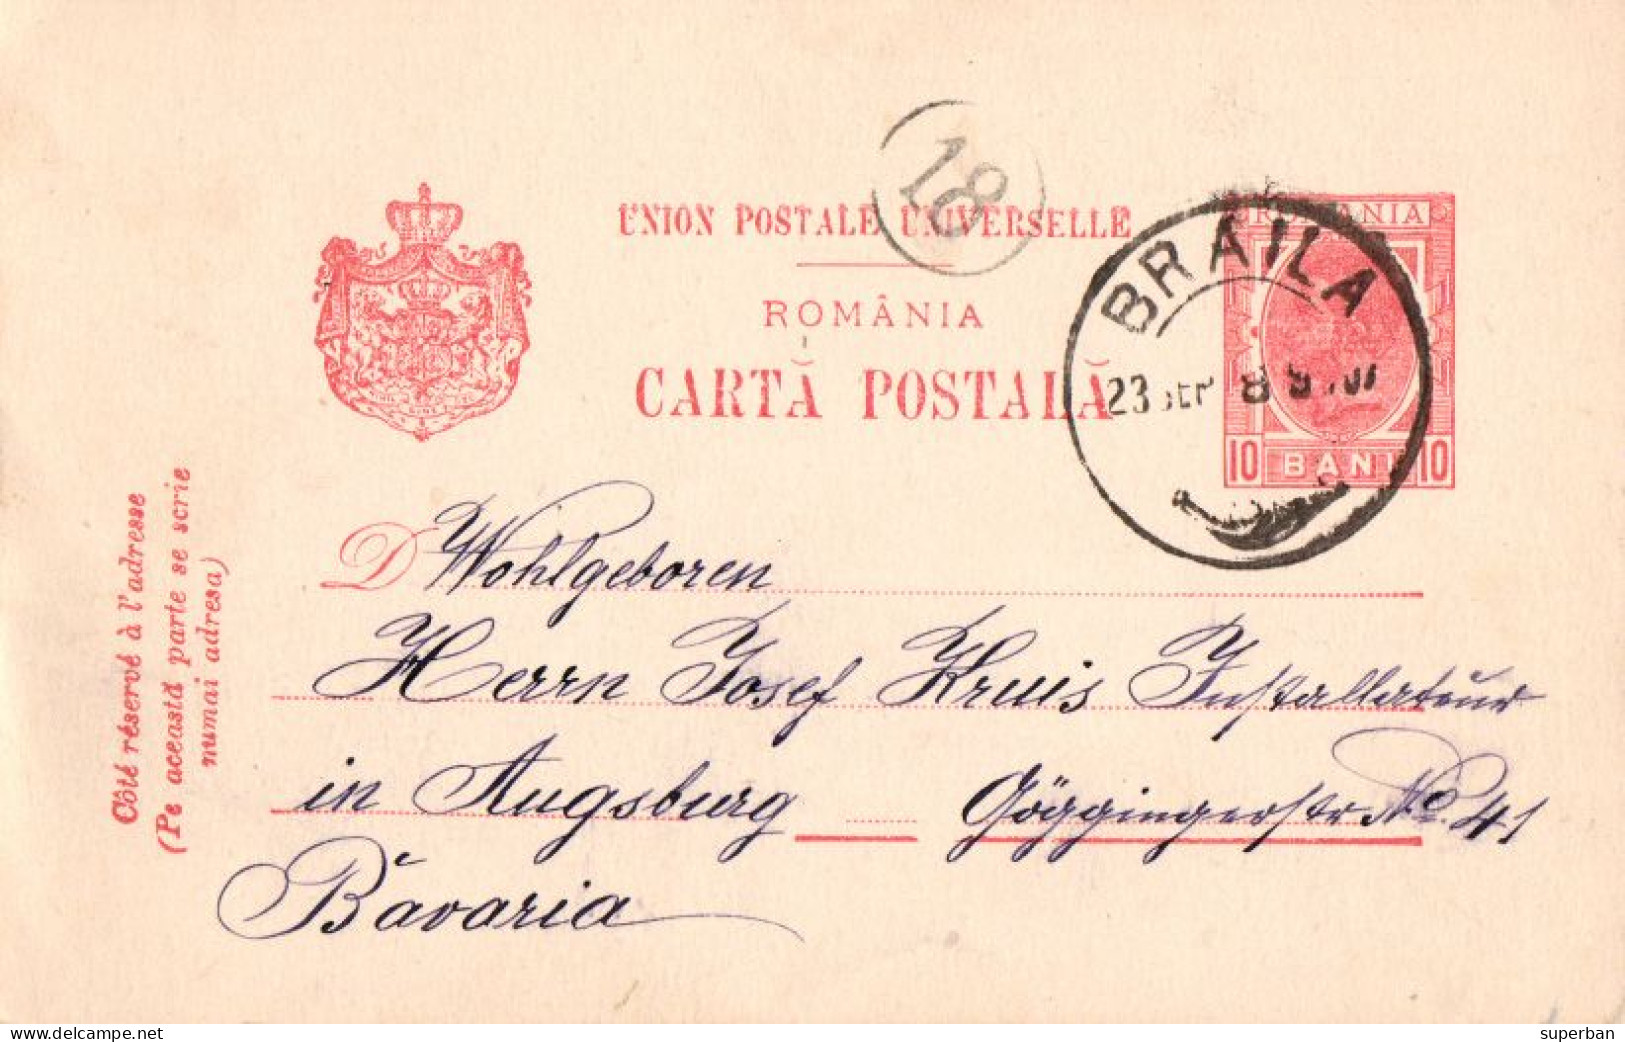 18
UNION POSTALE UNIVERSELLE
ROMÂNIA
CARTĂ POSTALĂ
ROMANIA
10 BANI 10
BRAILA
23 SEP 8
Côté réservé à l'adresse
(Pe această parte se scrie
numai adresa)
D Wohlgeboren
Herrn Josef Kruis Installateur
in Augsburg Göggingerstr No. 41
Bavaria
delcampe.net
superban